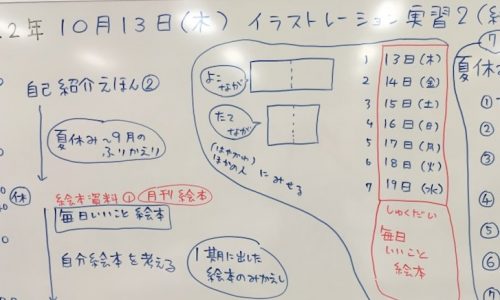 2年 10月13日(木) イラストレーション実習2(
⑦
自己紹介えほん②
夏休み〜9月の
ふりかえり
休
絵本資料① 月刊絵本
毎日いいこと絵本
自分絵本を考える
1期に出した
絵本のみかえし
よこ
なが
たて
なが
ほかの人 にみせる
1 13日(木)
2 14日(金)
3 15日(土)
4 16日(日)
5 17日(月)
6 18日(火)
7 19日(水)
しゅくだい
毎日
いいこと
絵本
夏休
①
②
③
④
⑤
⑥